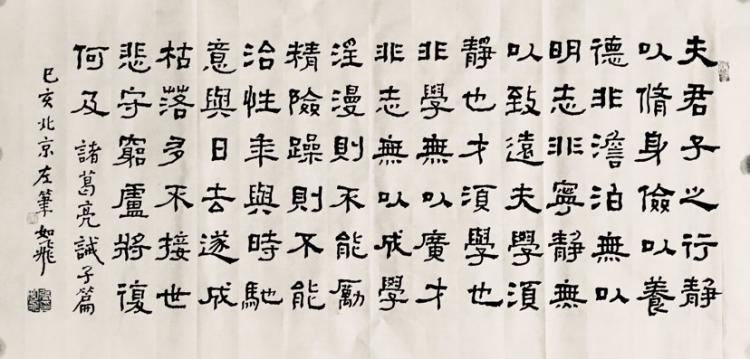 夫君子之行靜
以脩身儉以養
德非澹泊無以
明志非寧靜無
以致遠夫學須
靜也才須學也
非學無以廣才
非志無以成學
淫漫則不能勵
精險躁則不能
治性年與時馳
意與日去遂成
枯落多不接世
悲守窮盧將復
何及 諸葛亮誡子篇
己亥北京左筆如飛